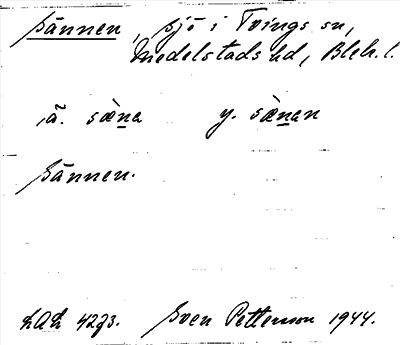 Sännen, sjö i Tvings sn,
Medelstads hd, Blek. l.
ä. sæ̀na y. sæ̀nan
Sännen.
LAL 4273. Sven Pettersson 1944.